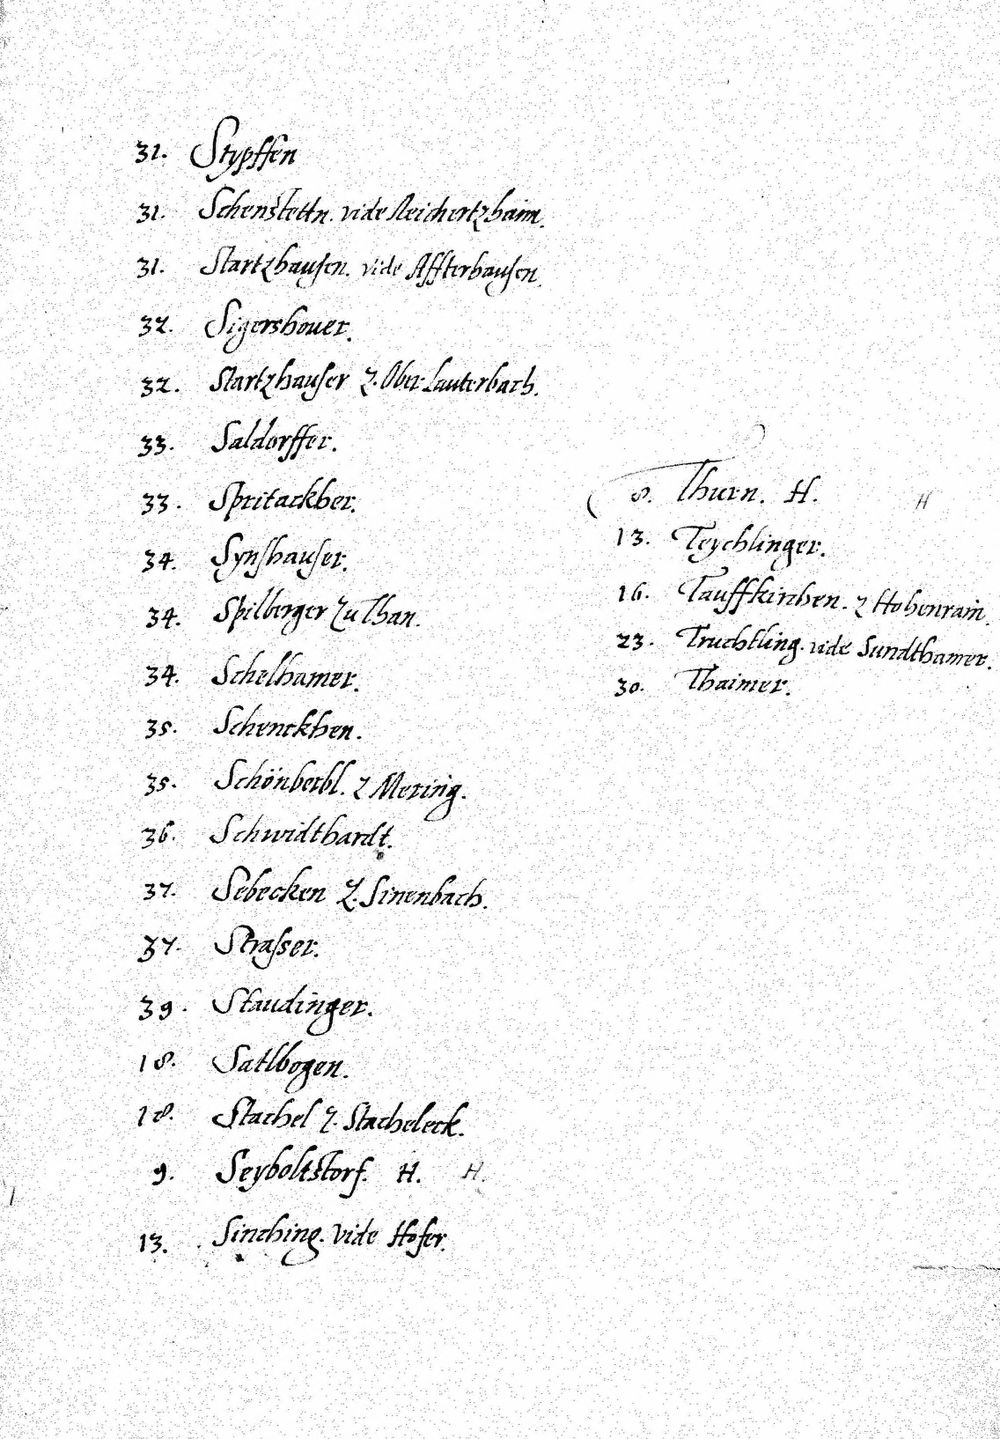 31. Stypffen
31. Schenstettn. vide Reichertzhaim.
31. Startzhausen. vide Affterhausen.
32. Sigershouer.
32. Startzhauser z. Ober Lauterbach.
33. Saldorffer.
33. Spritackher.
34. Synshauser.
34. Spilberger zu Than.
34. Schelhamer.
35. Schenckhen.
35. Schönberbl. z Mering.
36. Schwidthardt.
37. Sebecken z. Sinenbach.
37. Strasser.
39. Staudinger.
18. Satlbogen.
18. Stachel z. Stacheleck.
9. Seyboltstorf. H. H.
13. Sinching. vide Hofer.
8. Thurn. H. H
13. Teychlinger.
16. Tauffkirchen. z Hohenrain.
23. Truchtling. vide Sundthamer.
30. Thaimer.